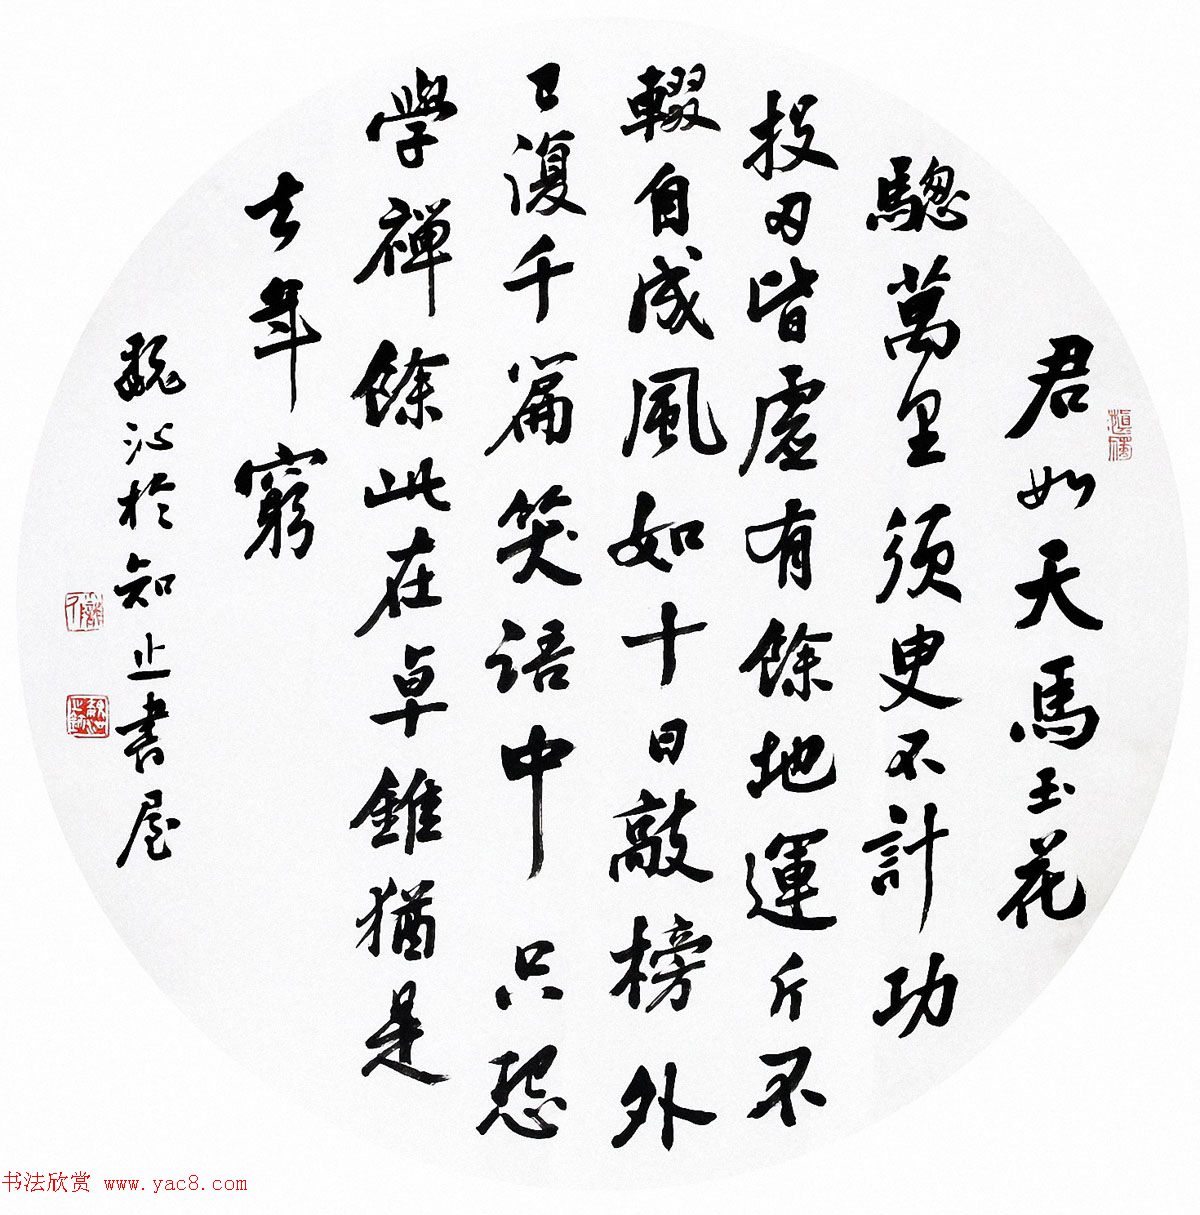 君如天馬玉花
驄萬里須臾不計功
投刃皆虛有餘地運斤不
輟自成風如十日敲榜外
已復千篇笑語中只恐
學禪餘此在卓錐猶是
去年窮
魏沁於知止書屋
书法欣赏 www.yac8.com